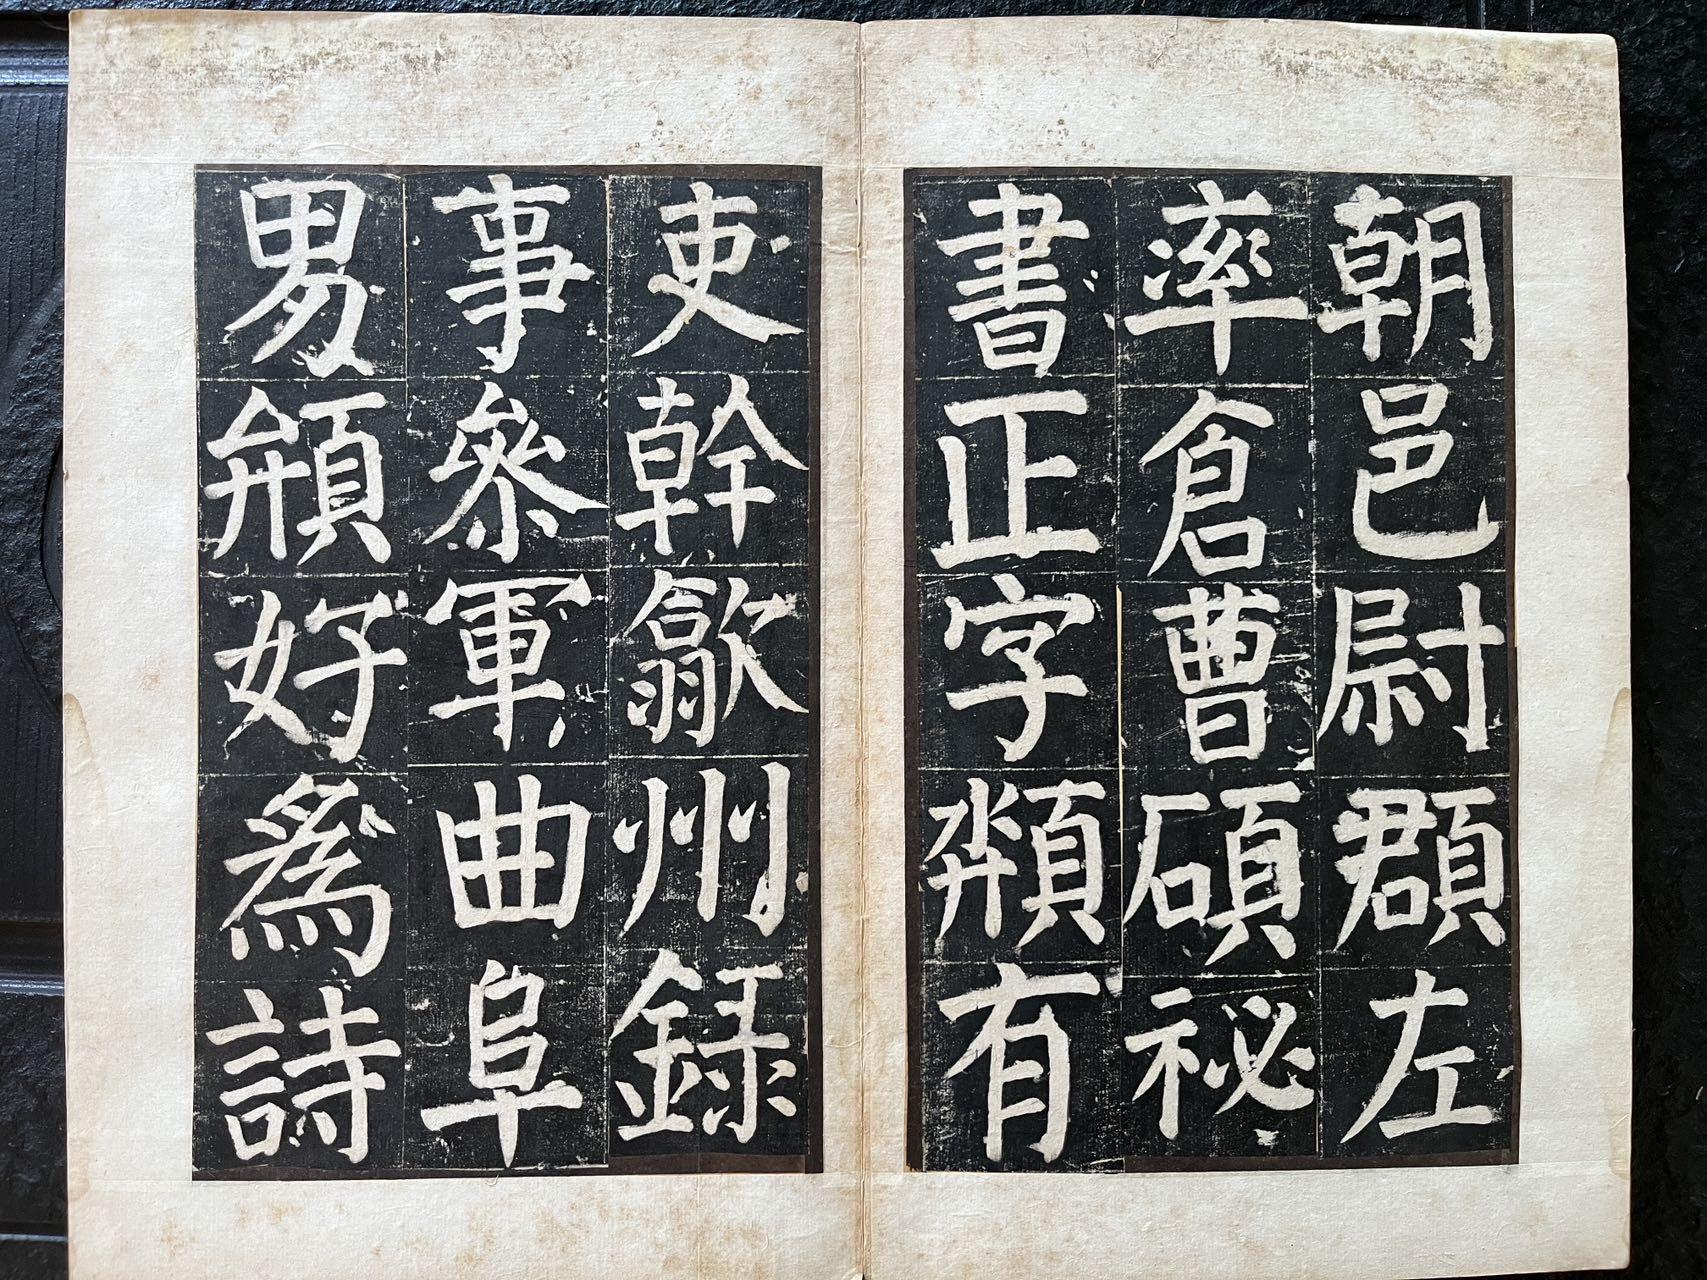 朝邑尉頵左
率倉曹碩祕
書正字顈有
吏幹歙州録
事參軍曲阜
男頔好為詩